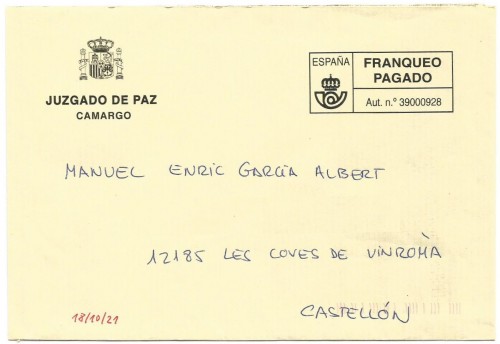 JUZGADO DE PAZ
CAMARGO
ESPAÑA
FRANQUEO
PAGADO
Aut. n.º 39000928
MANUEL ENRIC GARCÍA ALBERT
12185 LES COVES DE VINROMÀ
CASTELLÓN
18/10/21